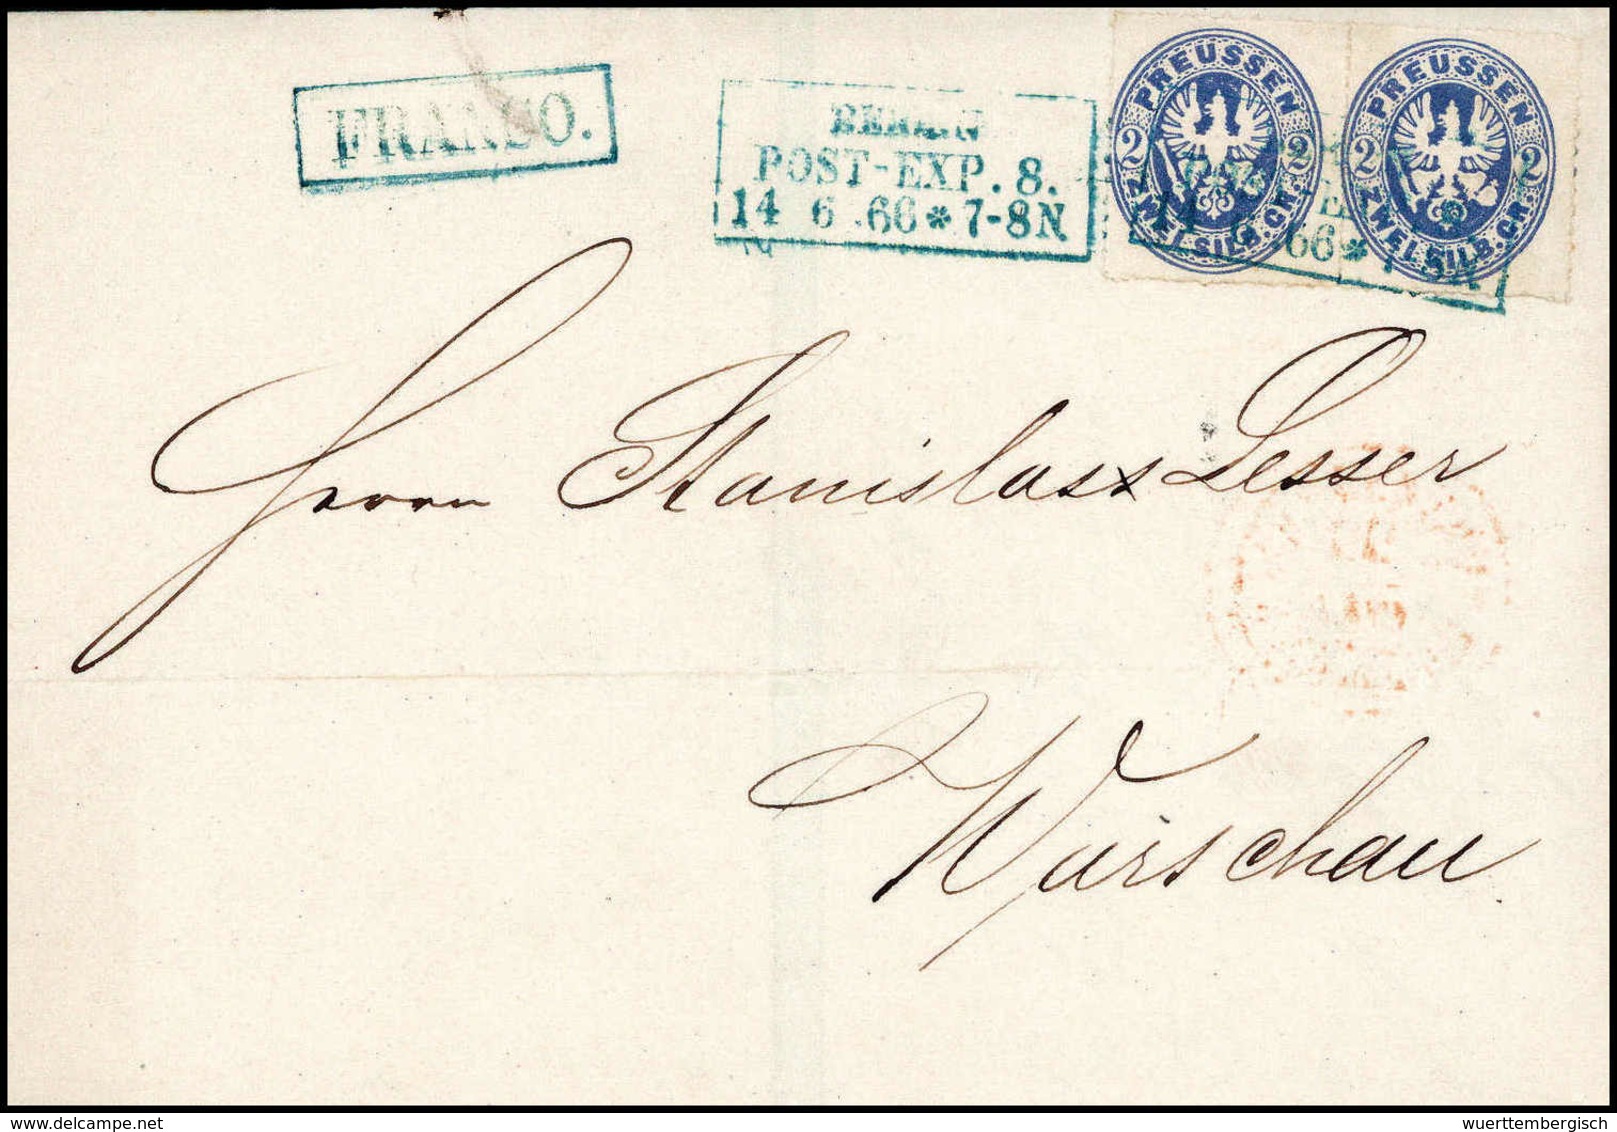 FRANCO.
BERLIN
POST-EXP. 8.
14 6 .66 * 7-8N
PREUSSEN
2 2
ZWEI SILB. GR.
PREUSSEN
2 2
ZWEI SILB. GR.
14 6 .66 * 7-8N
Herrn Stanislas Lesser
Warschau
wuerttembergisch